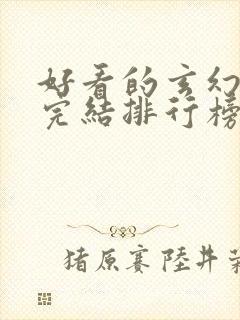 好看的玄幻
完結排行榜
猪原賽陸井